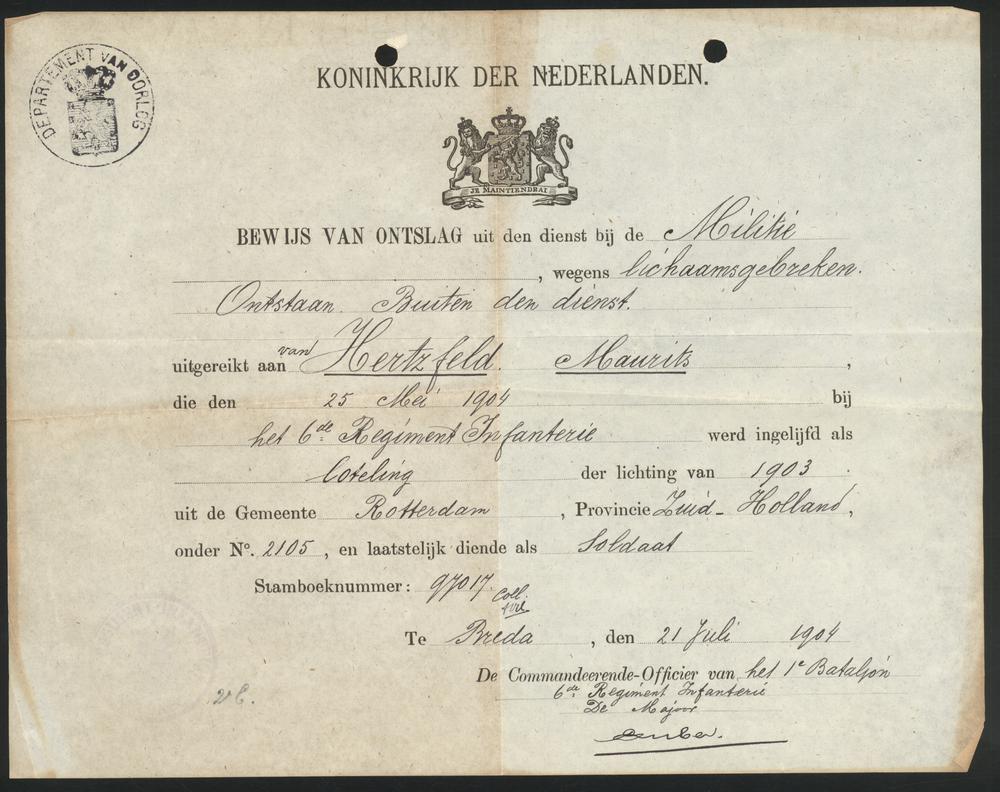 DEPARTEMENT VAN OORLOG
KONINKRIJK DER NEDERLANDEN.
JE MAINTIENDRAI
BEWIJS VAN ONTSLAG uit den dienst bij de Militie
, wegens lichaamsgebreken.
Ontstaan Buiten den dienst.
uitgereikt aan van Hertzfeld. Maurits ,
die den 25 Mei 1904 bij
het 6de Regiment Infanterie werd ingelijfd als
loteling der lichting van 1903
uit de Gemeente Rotterdam , Provincie Zuid-Holland,
onder No. 2105 , en laatstelijk diende als Soldaat
Stamboeknummer: 97017.
Coll.
Te Breda , den 21 Juli 1904
De Commandeerende-Officier van het 1e Bataljon
6de Regiment Infanterie
De Majoor